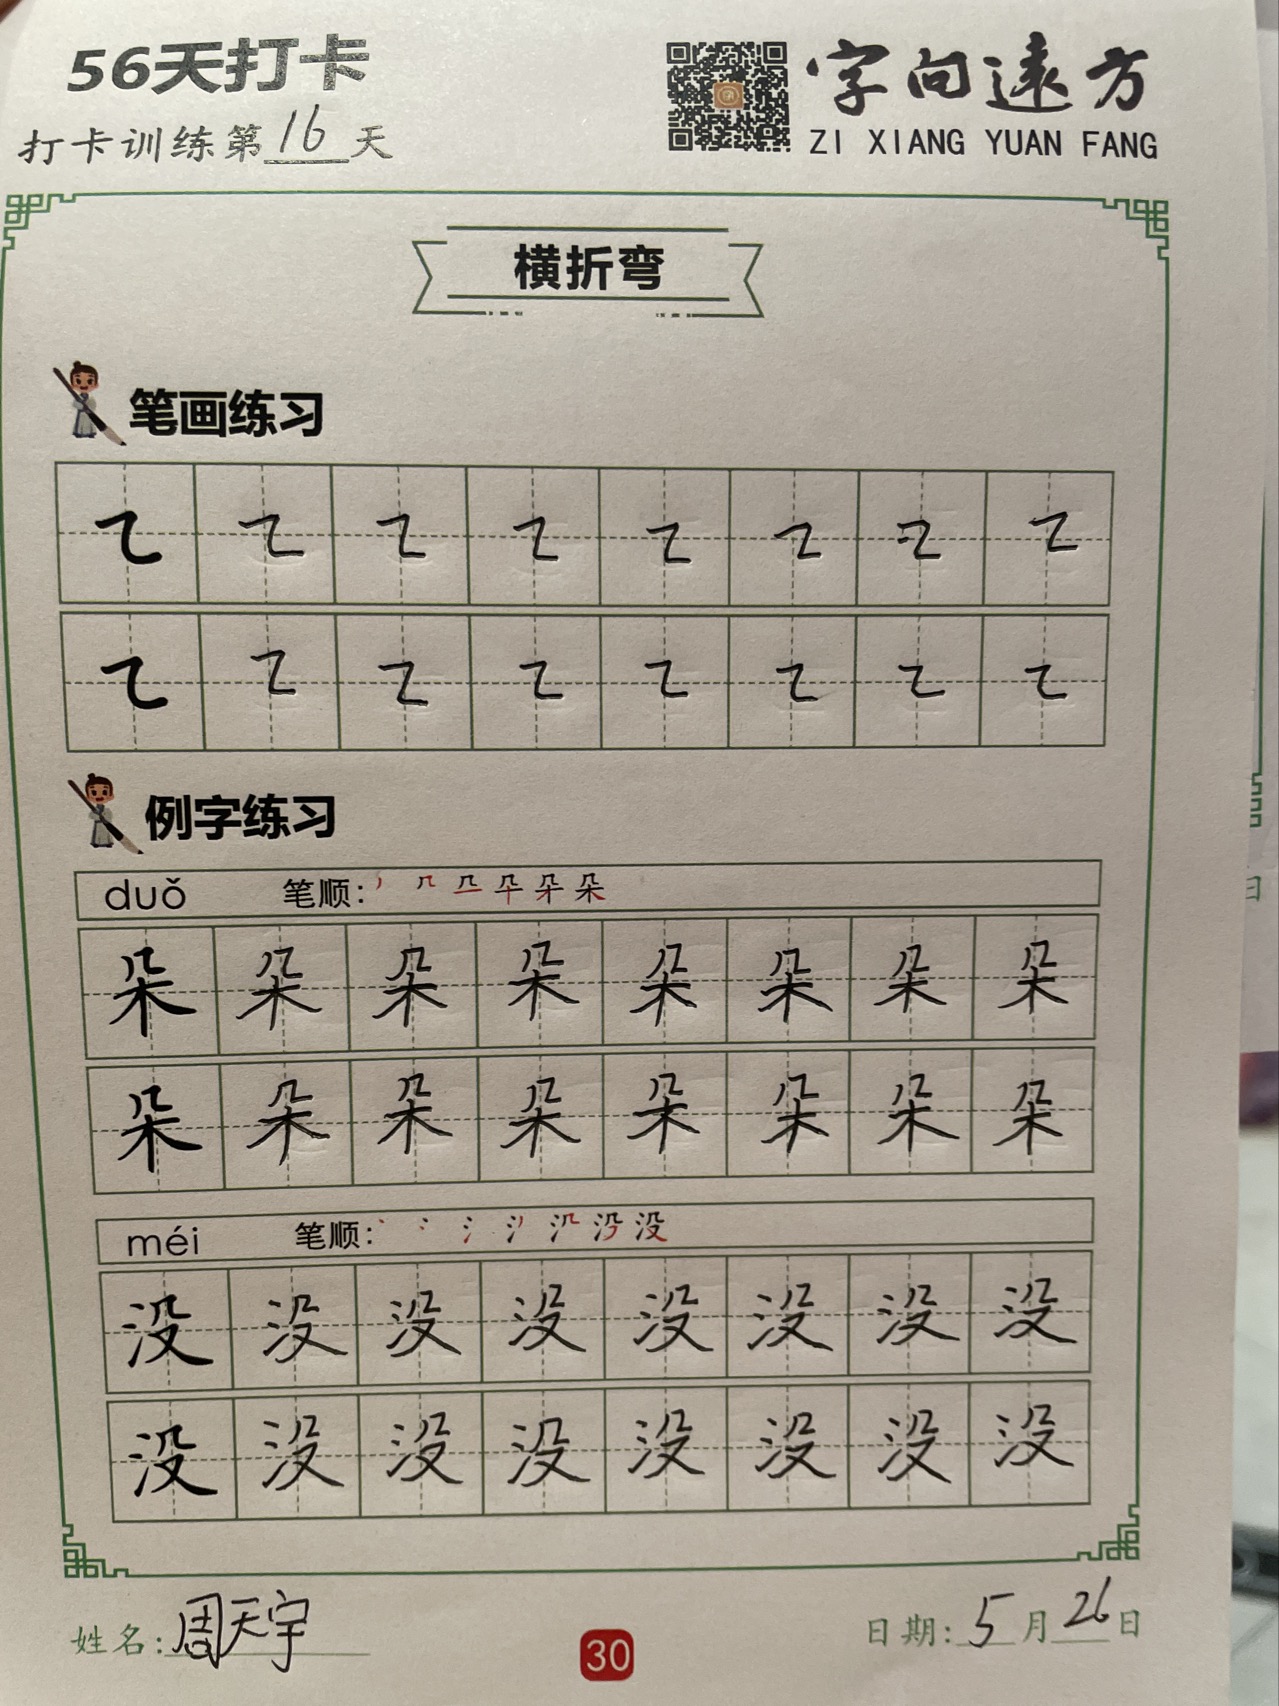 56天打卡
字向遠方
打卡训练第16天
ZI XIANG YUAN FANG
横折弯
笔画练习
例字练习
duǒ 笔顺:
朵 朵 朵 朵 朵 朵 朵 朵
朵 朵 朵 朵 朵 朵 朵 朵
méi 笔顺:
没 没 没 没 没 没 没 没
没 没 没 没 没 没 没 没
姓名:周天宇
30
日期:5月26日